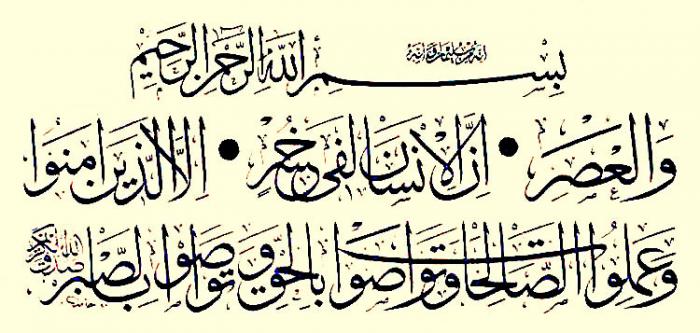 بِسْمِ اللَّهِ الرَّحْمَٰنِ الرَّحِيمِ
وَالْعَصْرِ • إِنَّ الْإِنْسَانَ لَفِي خُسْرٍ • إِلَّا الَّذِينَ آمَنُوا
وَعَمِلُوا الصَّالِحَاتِ وَتَوَاصَوْا بِالْحَقِّ وَتَوَاصَوْا بِالصَّبْرِ